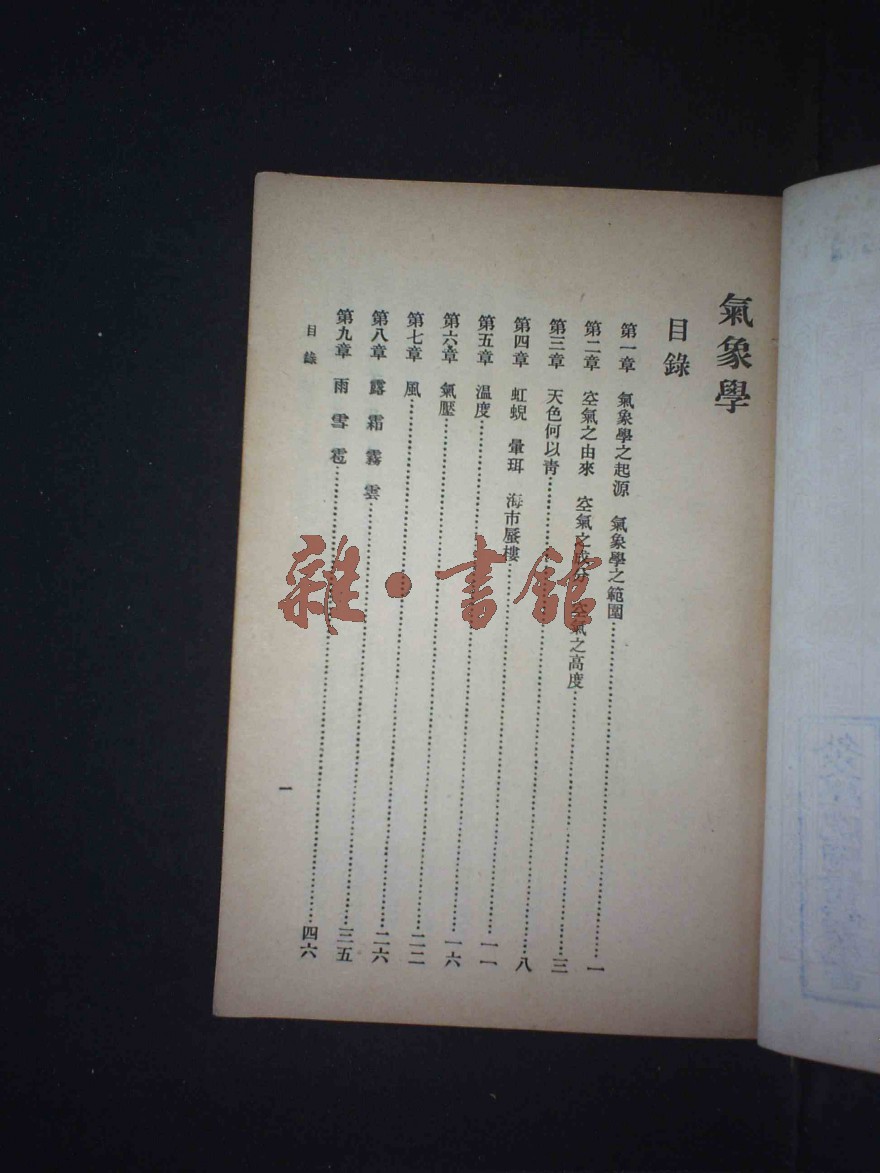 氣象學
目錄
第一章 氣象學之起源 氣象學之範圍……一
第二章 空氣之由來 空氣之成分 空氣之高度……三
第三章 天色何以青……八
第四章 虹蜺 暈珥 海市蜃樓……一一
第五章 溫度……一六
第六章 氣壓……二二
第七章 風……二六
第八章 露 霜 霧 雲……三五
第九章 雨 雪 雹……四六
目錄
一
雜·書館